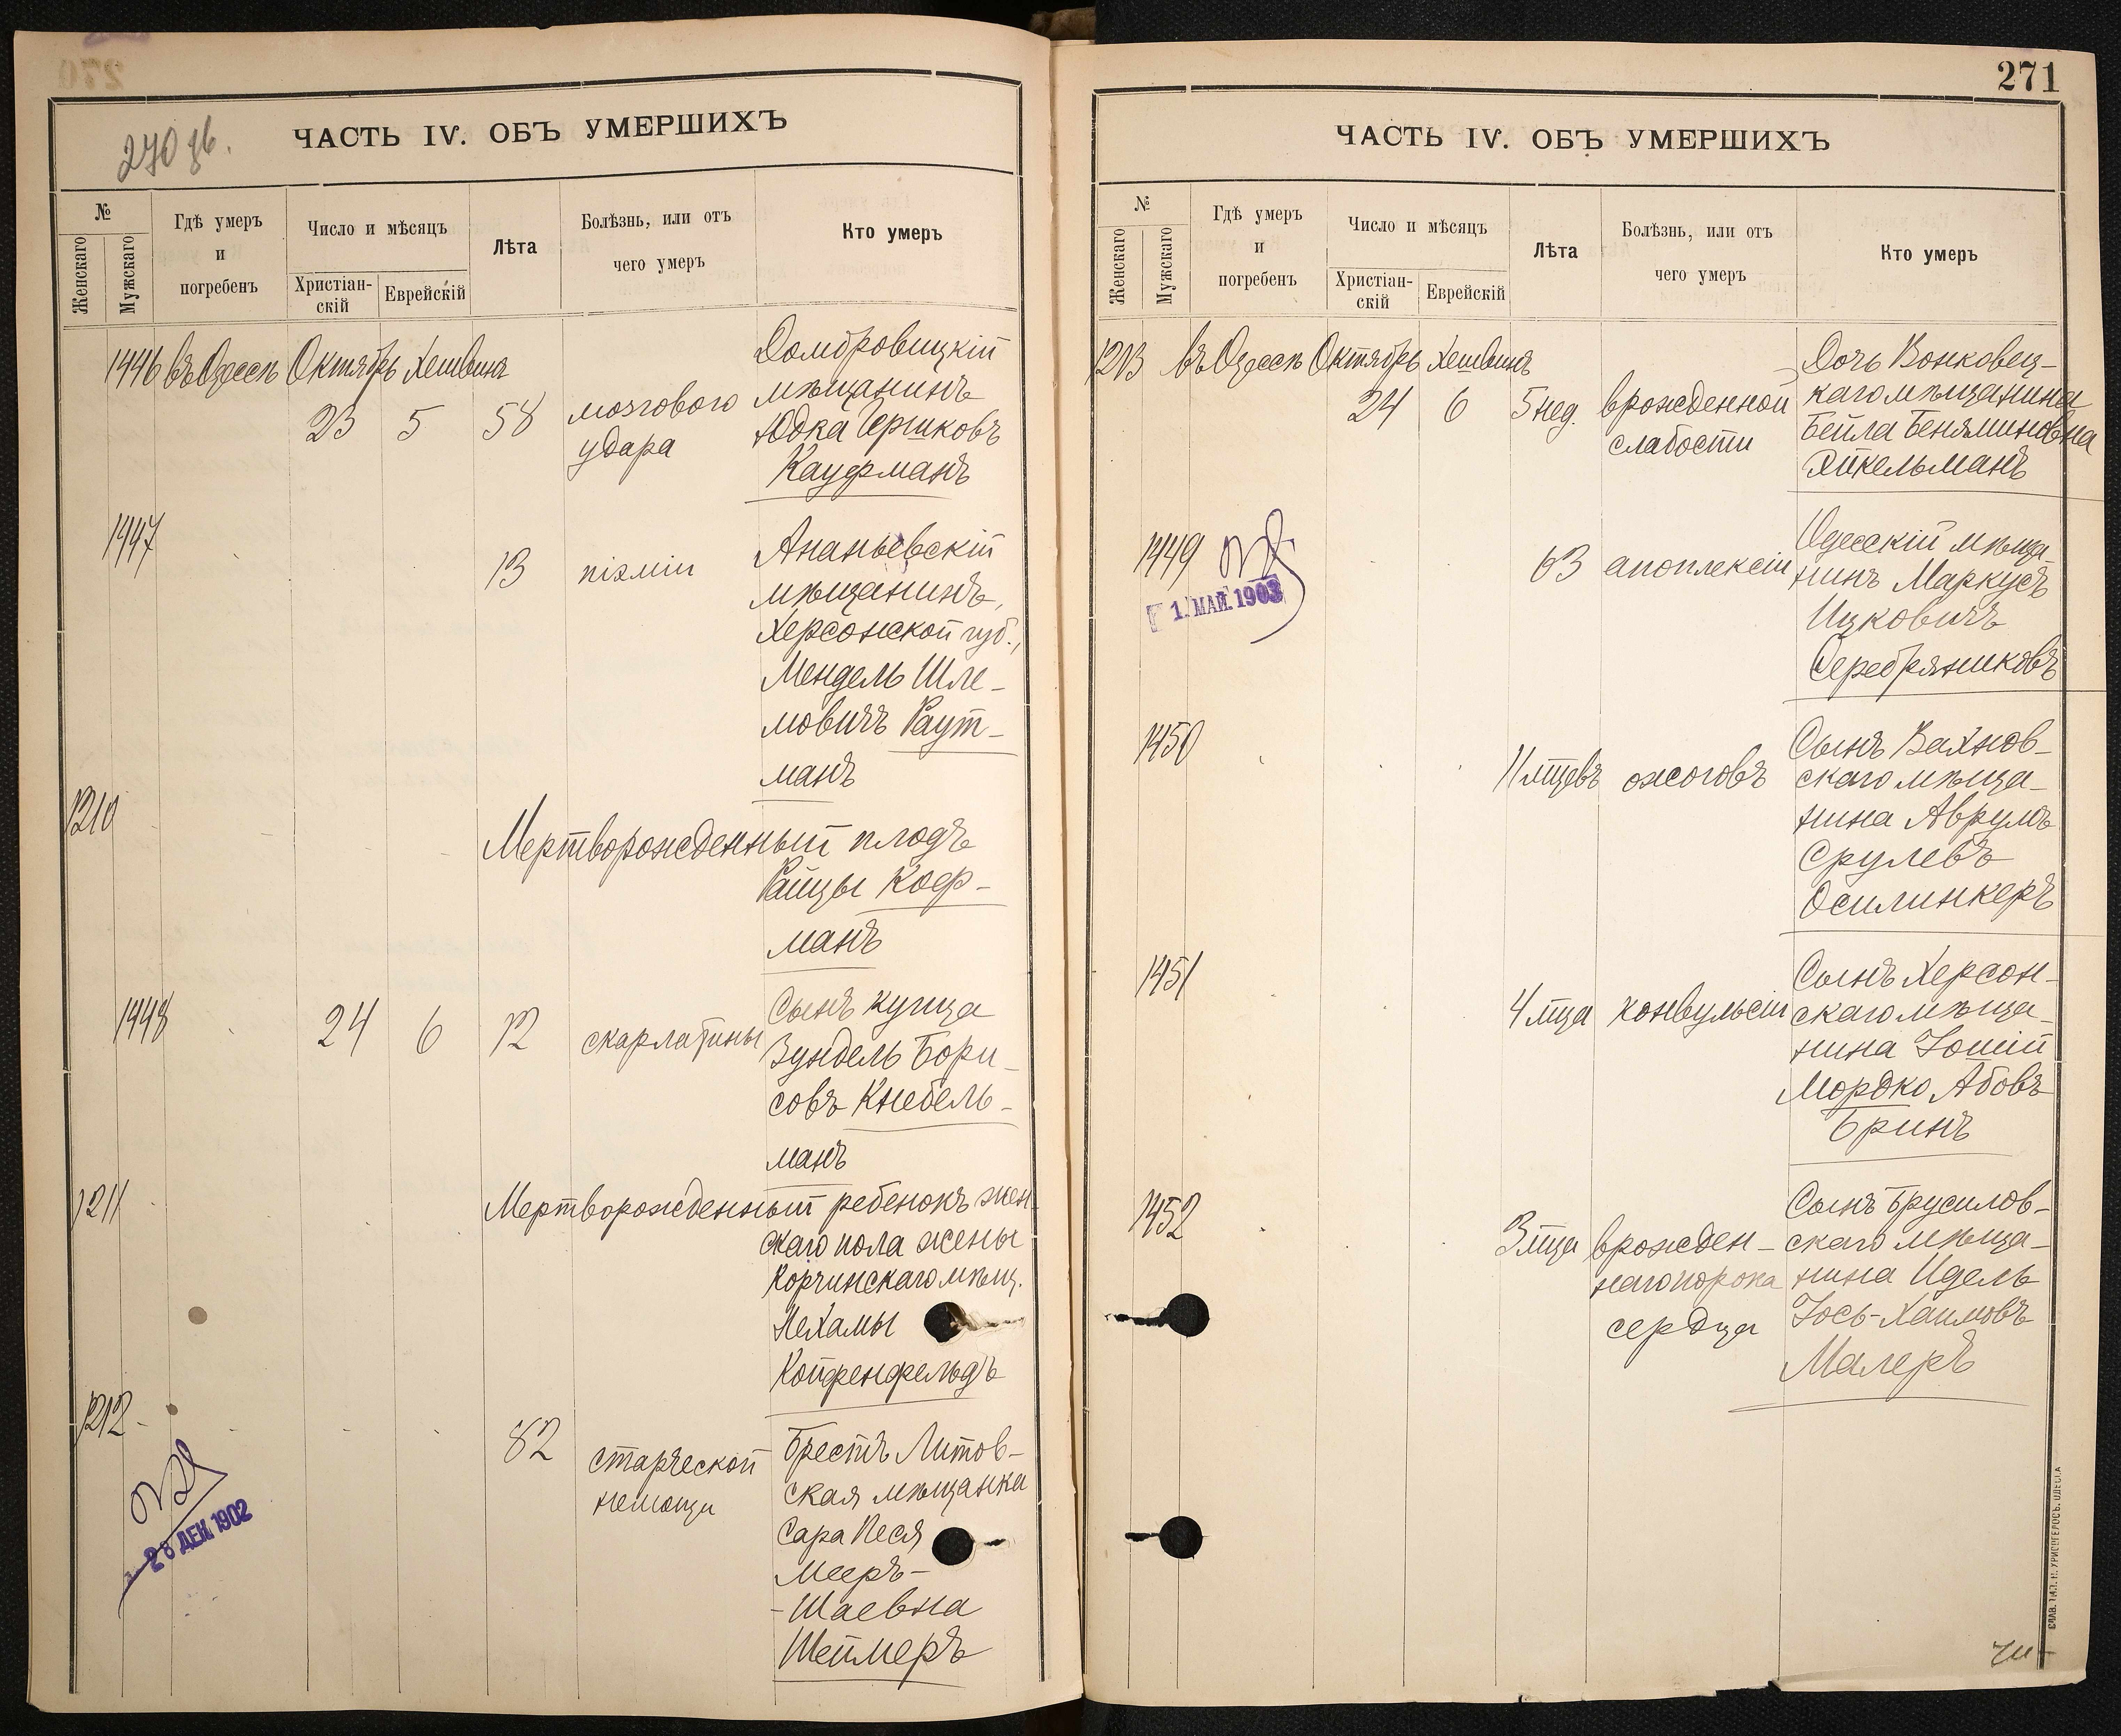 270 об.
ЧАСТЬ IV. ОБЪ УМЕРШИХЪ
№
Женскаго
Мужскаго
Гдѣ умеръ
и
погребенъ
Число и мѣсяцъ
Христіан-
скій
Еврейскій
Лѣта
Болѣзнь, или отъ
чего умеръ
Кто умеръ
1446 въ Одессѣ Октябрь Хешвинъ
23 5 58 мозгового
удара
Домбровицкій
мѣщанинъ
Юдка Гершковъ
Кауфманъ
1447
13 піэміи
Ананьевскій
мѣщанинъ,
Херсонской губ.,
Мендель Шле-
мовичъ Раут-
манъ
1210
Мертворожденный плодъ
Райцы Коф-
манъ
1448 24 6 12 скарлатины
Сынъ купца
Зундель Бори-
совъ Кнебель-
манъ
1211
Мертворожденный ребенокъ жен-
скаго пола жены
Корчинскаго мѣщ.
Нехамы
Койфенфельдъ
1212
82 старческой
немощи
Брестъ Литов-
ская мѣщанка
Сара Песя
Мееръ-
-Шаевна
Шеймеръ
28 ДЕК 1902
271
ЧАСТЬ IV. ОБЪ УМЕРШИХЪ
№
Женскаго
Мужскаго
Гдѣ умеръ
и
погребенъ
Число и мѣсяцъ
Христіан-
скій
Еврейскій
Лѣта
Болѣзнь, или отъ
чего умеръ
Кто умеръ
1213 въ Одессѣ Октябрь Хешвинъ
24 6 5 нед. врожденной
слабости
Дочь Вонковец-
каго мѣщанина
Бейла Беняминовна
Эйкельманъ
1449
63 апоплексіи
Одесскій мѣща-
нинъ Маркусъ
Ицковичъ
Серебряниковъ
1. МАЙ. 1903
1450
11 мцевъ ожоговъ
Сынъ Вахнов-
скаго мѣща-
нина Аврумъ
Срулевъ
Осилинкеръ
1451
4 мца конвульсіи
Сынъ Херсон-
скаго мѣща-
нина Іошій
Мордко Абовъ
Бринъ
1452
3 мца врожден-
наго порока
сердца
Сынъ Брусилов-
скаго мѣща-
нина Идель
Іось-Хаимовъ
Малеръ